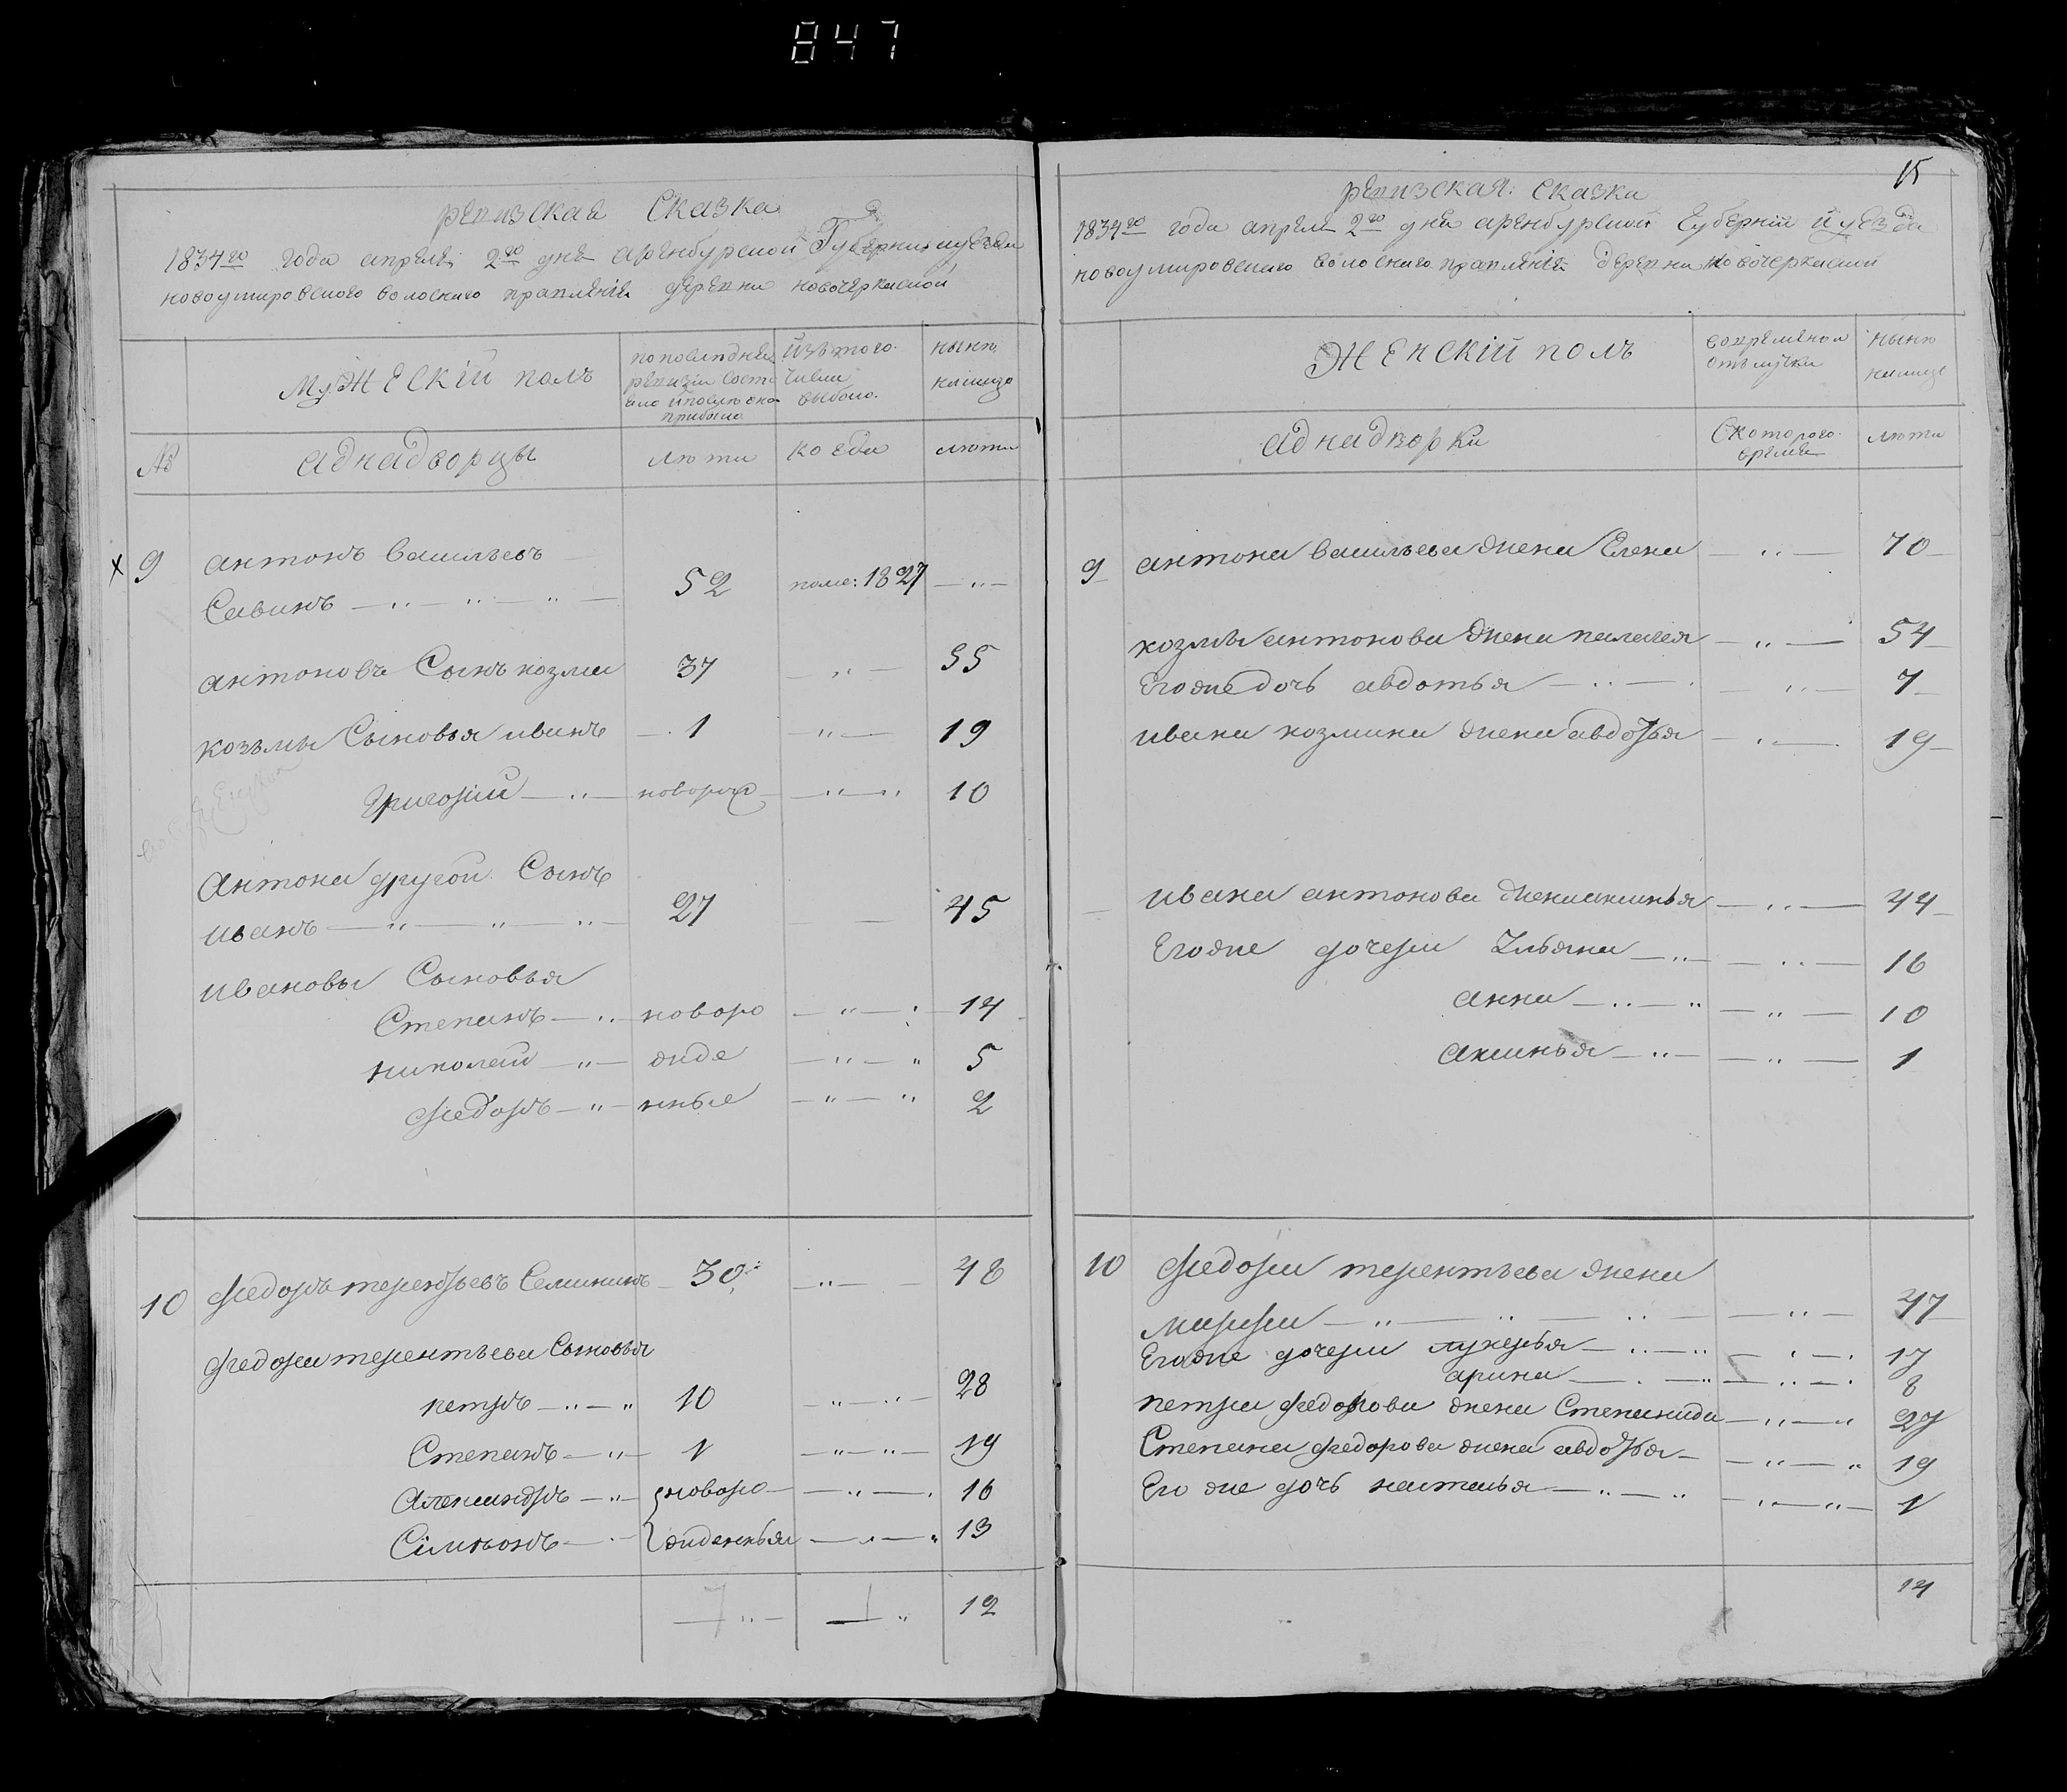 847
ревизская Сказка
1834го года апреля 2го дня аренбурской Губернии иуезда
новоумировского волоснаго правления деревни новочеркаской
Мужескiй полъ
по последней
ревизiи состо
яло ипосле оной
прибыло
Изътого
числа
выбыло.
ныне
налицо
№
аднадворцы
лета
когда
лета
9 антонъ васильевъ
Савинъ — " — " — " — 52 поме: 1827 — " —
антоновъ Сынъ козма 37 — " — 55
козьмы Сыновья иванъ — 1 — " — 19
Григорiй — " — новорож — " — " 10
Антона другой Сынъ
иванъ — " — " — " — 27 — 45
ивановы Сыновья
Степанъ — " — новоро — " — 14
николай — " — жде — " — " 5
федоръ — " — нные — " — " 2
10 федоръ терентьевъ Семинин 30 — " — 48
федора терентьева Сыновья
петръ — " — " 10 — " — " — 28
Степанъ — " — 1 — " — " — 19
Александръ — " — новоро — " — 16
Симионъ — жденныя — " — " 13
7 " — 1 " 12
15
ревизская: сказка
1834го года апреля 2го дня аренбурской Губернiи иуезда
новоумировского волоснаго правленiя деревни новочеркаской
Женскiй полъ
вовременной
отълучки
ныне
налице
аднадворки
Скоторого
время
лета
9 антона васильева жена Елена — " — 70
козмы антонова жена пелагея — " — 54
Егоже дочь авдотья — " — " — 7
ивана козмина жена авдотья — " — 19
ивана антонова жена аксинья — " — 44
Егоже дочери Ульяна — " — " — 16
анна — " — " — " — 10
аксинья — " — " — 1
10 федора терентьева жена
марфа — " — " — " — " — 47
Егоже дочери лукерья — " — " — " — 17
арина — " — " — 8
петра федорова жена Степанида — " — " 27
Степана федорова жена авдотья — " — " 19
Его же дочь настасья — " — " — " — 1
14